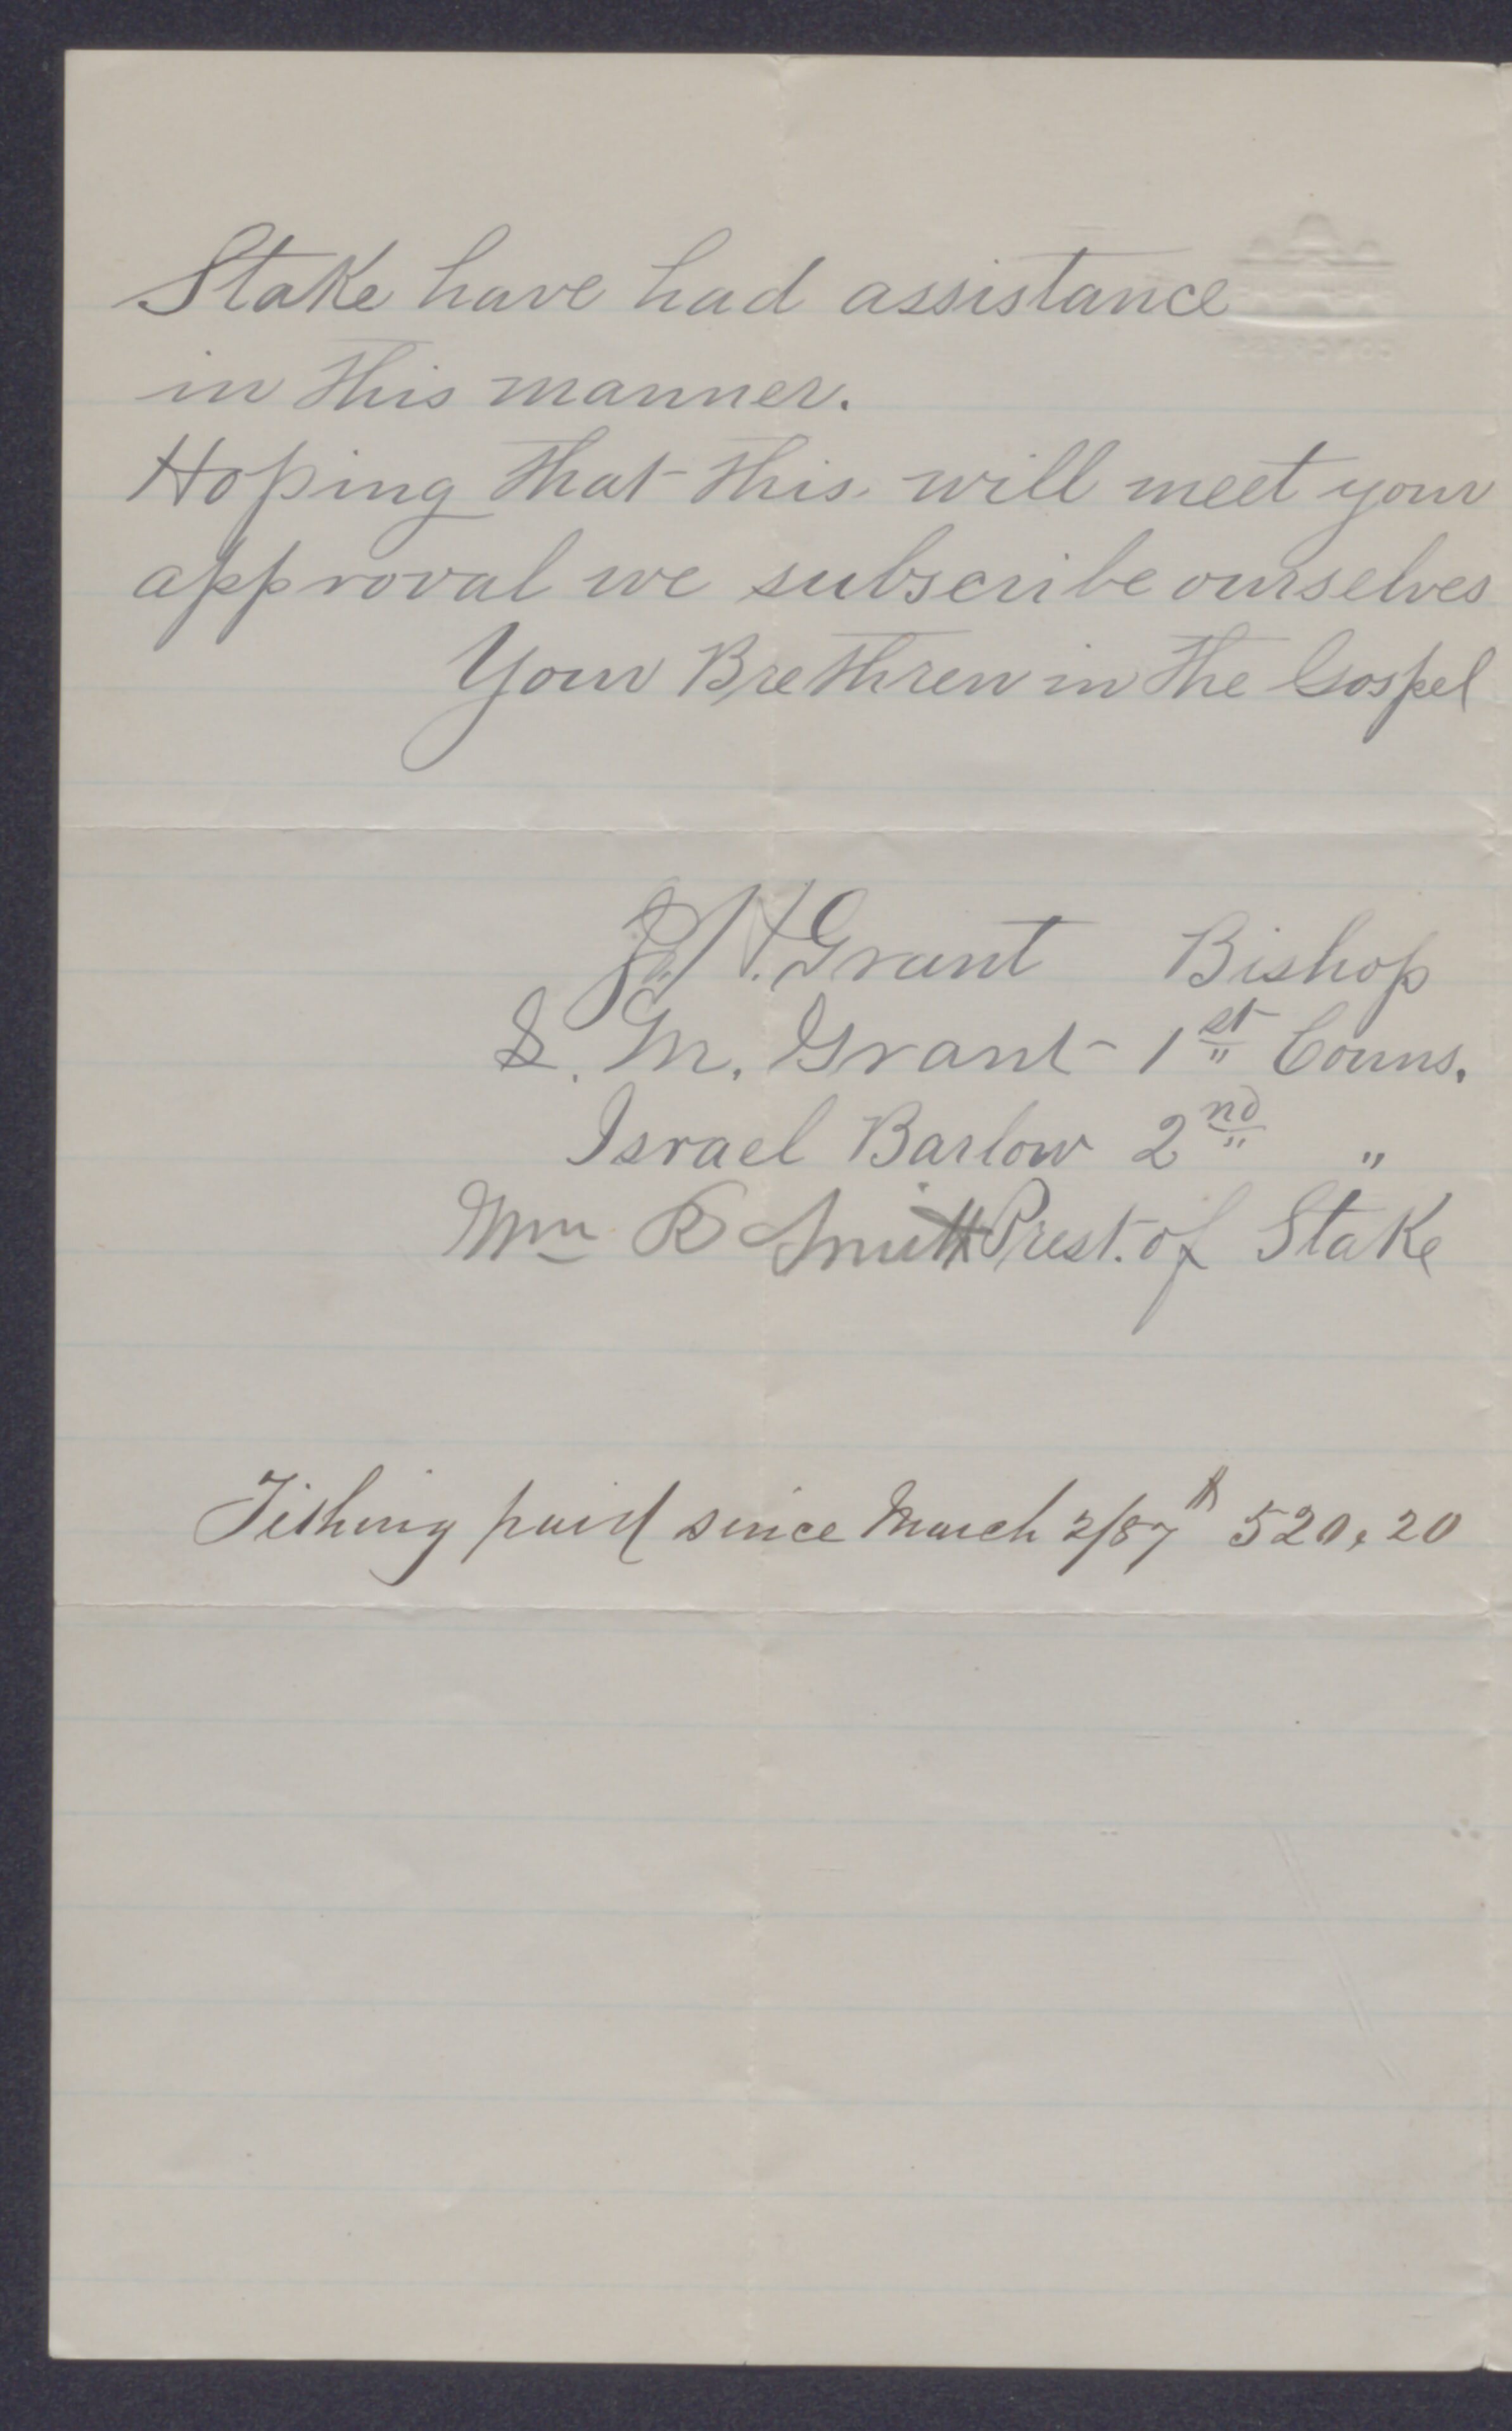 Stake have had assistance
in this manner.
Hoping that this will meet your
approval we subscribe ourselves
Your Brethren in the Gospel
J. H. Grant Bishop
S. M. Grant 1st Couns.
Israel Barlow 2nd "
Wm R Smith Prest. of Stake
Tithing paid since March 2/87 $ 520.20